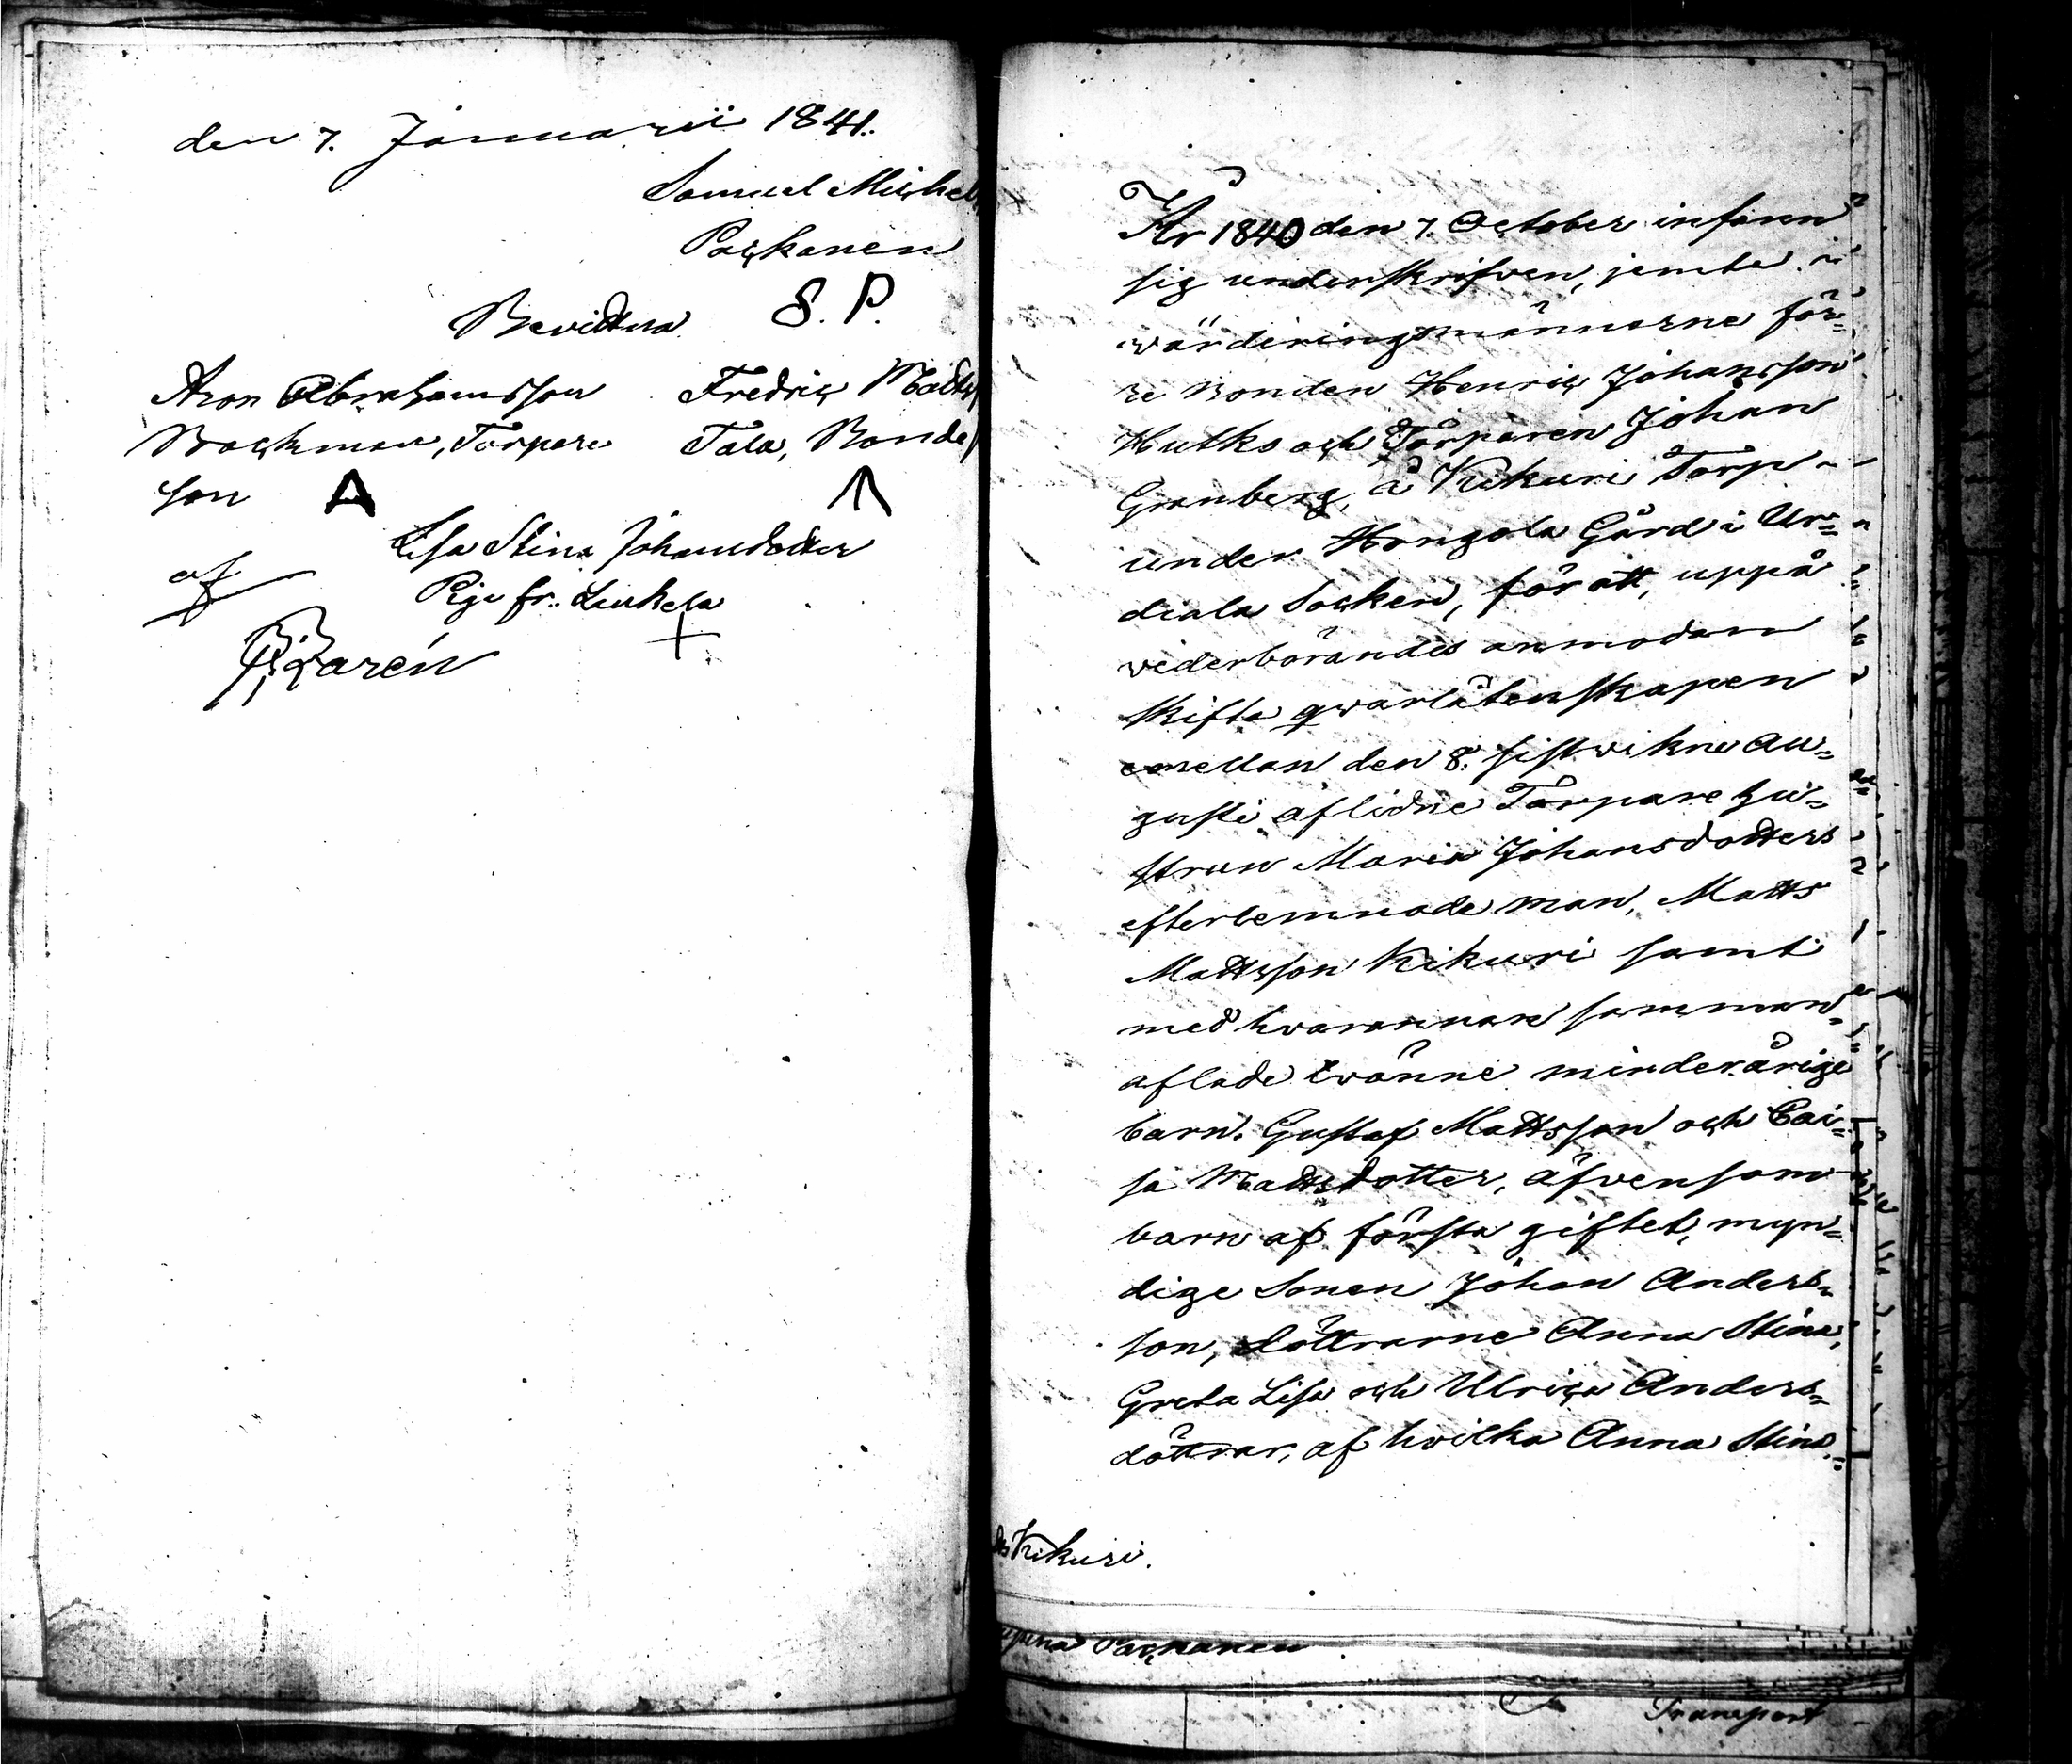 den 7. Januarii 1841.
Samuel Michel
Packanen
Bevittna S. P.
Aron Abrahamsson
Backman, Torpare
son A
Fredric Matts
Tala, Bonde
Lisa Stina Johansdotter
Piga fr. Laukela
af
Karén
År 1840 den 7. October infann
sig underskrifven, jemte
wärderingsmännerne för=
re Bonden Henric Johansson
Hutko och Torparen Johan
Granberg, å Kikuri Torp
under Hongola Gård i Ur=
diala Socken, för att, uppå
vederbörandes anmodan
skifta qwarlåtenskapen
emellan den 8. sistvikne Au=
gusti aflidne Torpare hu=
strun Maria Johansdotters
efterlemnade man, Matts
Mattsson Kikuri samt
med hvarannan samman=
aflade tvänne minderårige
barn. Gustaf Mattsson och Cai=
sa Mattsdotter, äfvensom
barn af första giftet, myn=
dige Sonen Johan Anders=
son, döttrarne Anna Stina,
Greta Lisa och Ulrica Anders=
döttrar, af hvilka Anna Stina
Kikuri.
Packanen
Transport